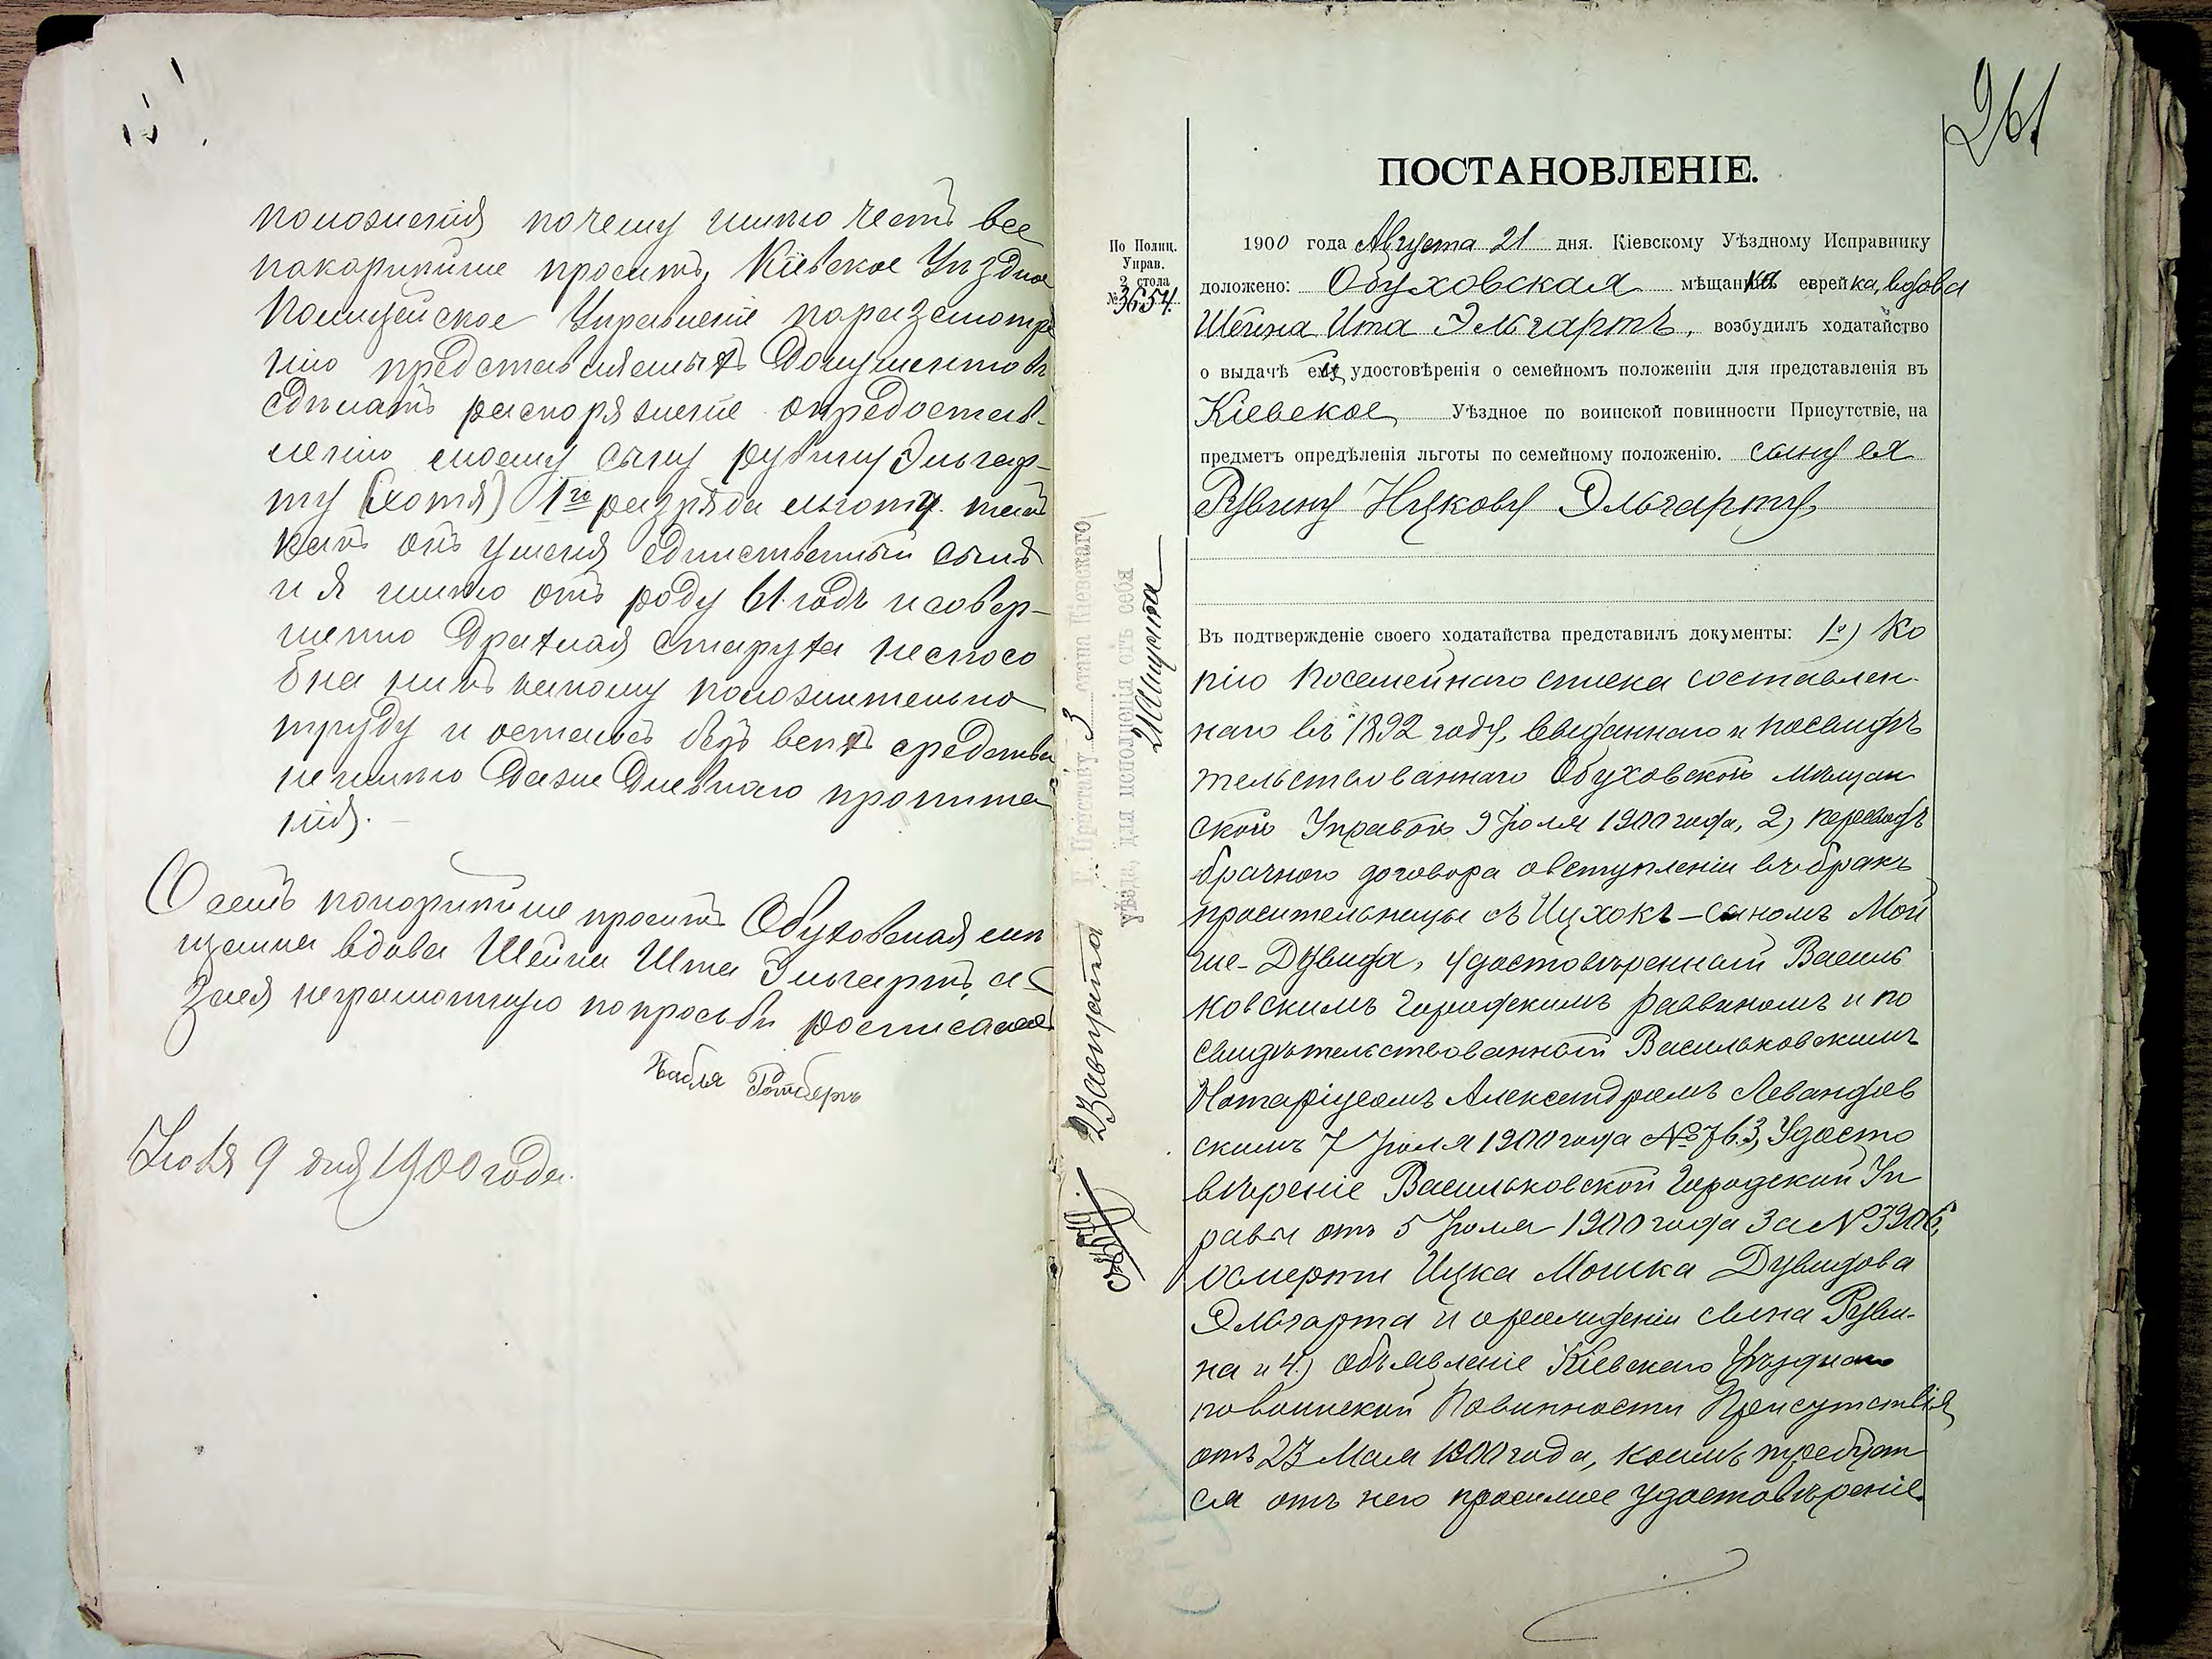 положенія почему имѣю честь все
покорнѣйше просить, Кіевское Уѣздное
Полицейское Управленіе поразсмотре
нію представляемыхъ документовъ
сдѣлать распоряженіе опредостав-
ленію моему сыну рувину Эльгар-
ту (хотя) 1го разряда льготу. такъ
какъ онъ уменя единственный сынъ
и я имѣю отъ роду 61 годъ и совер-
шенно дряхлая старуха неспосо
бна никъ какому положительно
труду и осталась безъ всехъ средствъ
не имѣю даже дневного пропита
нія.
О семъ покорнѣйше проситъ Обуховская мѣ
щанка вдова Шейна Ита Эльгартъ, а
занея неграмотную попросьбѣ росписался
Ротберъ
Іюля 9 дня 1900 года.
261
ПОСТАНОВЛЕНІЕ.
По Полиц.
Управ.
2 стола
№ 3654.
1900 года Августа 21 дня. Кіевскому Уѣздному Исправнику
доложено: Обуховская мѣщанка еврейка, вдова
Шейна Ита Эльгартъ, возбудилъ ходатайство
о выдачѣ ей удостовѣренія о семейномъ положеніи для представленія въ
Кіевское Уѣздное по воинской повинности Присутствіе, на
предметъ опредѣленія льготы по семейному положенію. сыну ея
Рувину Ицкову Эльгарту
Въ подтвержденіе своего ходатайства представилъ документы: 1) Ко
пію посемейнаго списка составлен-
наго въ 1892 году, выданнаго и посвидѣ
тельствованнаго Обуховской Мѣщан
ской Управой 9 Іюля 1900 года, 2) переводъ
брачного договора овступленіи въ бракъ
просительницы съ Ицхокъ-сыномъ Мой
ше-Дувида, удостовѣренный Василь
ковскимъ Городскимъ раввиномъ и по
свидѣтельствованной Васильковскимъ
Нотаріусомъ Александромъ Левандов
скимъ 7 Іюля 1900 года № 763, Удосто
вѣреніе Васильковской Городской Уп
равы отъ 5 Іюля 1900 года за № 3906,
осмерти Ицка Мошка Дувидова
Эльгарта и орожденіи сына Руви-
на и 4) объявленіе Кіевскаго Уѣзднаго
повоинской Повинности Присутствія
отъ 23 Мая 1900 года, коимъ требует
ся отъ него просимое удостовѣреніе.
Г. Приставу 3 стана Кіевскаго
уѣзда, для исполненія отъ себя
23 Августа